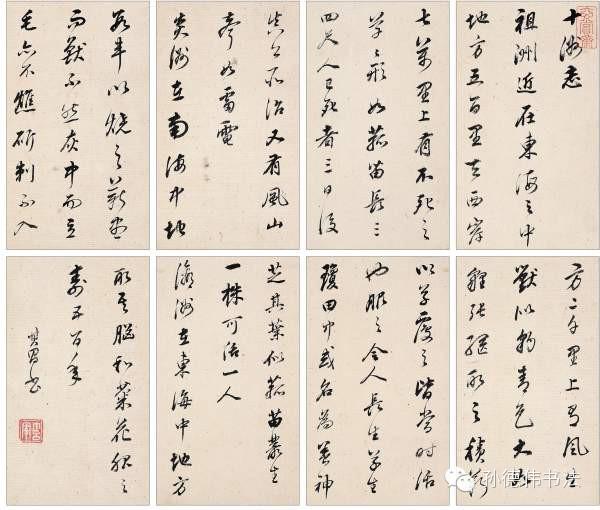 十洲志
祖洲近在東海之中
地方五百里去西岸
七萬里上有不死之
草草形如菰苗長三
四尺人已死者三日後
所治又有風山
如雷電
炎洲在南海中地
數車以燒之薪盡
而獸不然灰中而立
毛亦不燋斫刺不入
方二千里上有風生
獸似豹青色大如
狸張網取之積薪
以草覆之皆當時活
也服之令人長生草生
瓊田中或名為養神
芝其葉似菰苗叢生
一株可活一人
瀛洲在東海中地方
取其腦和菊花服之
壽五百年
其昌書
孙德伟书法